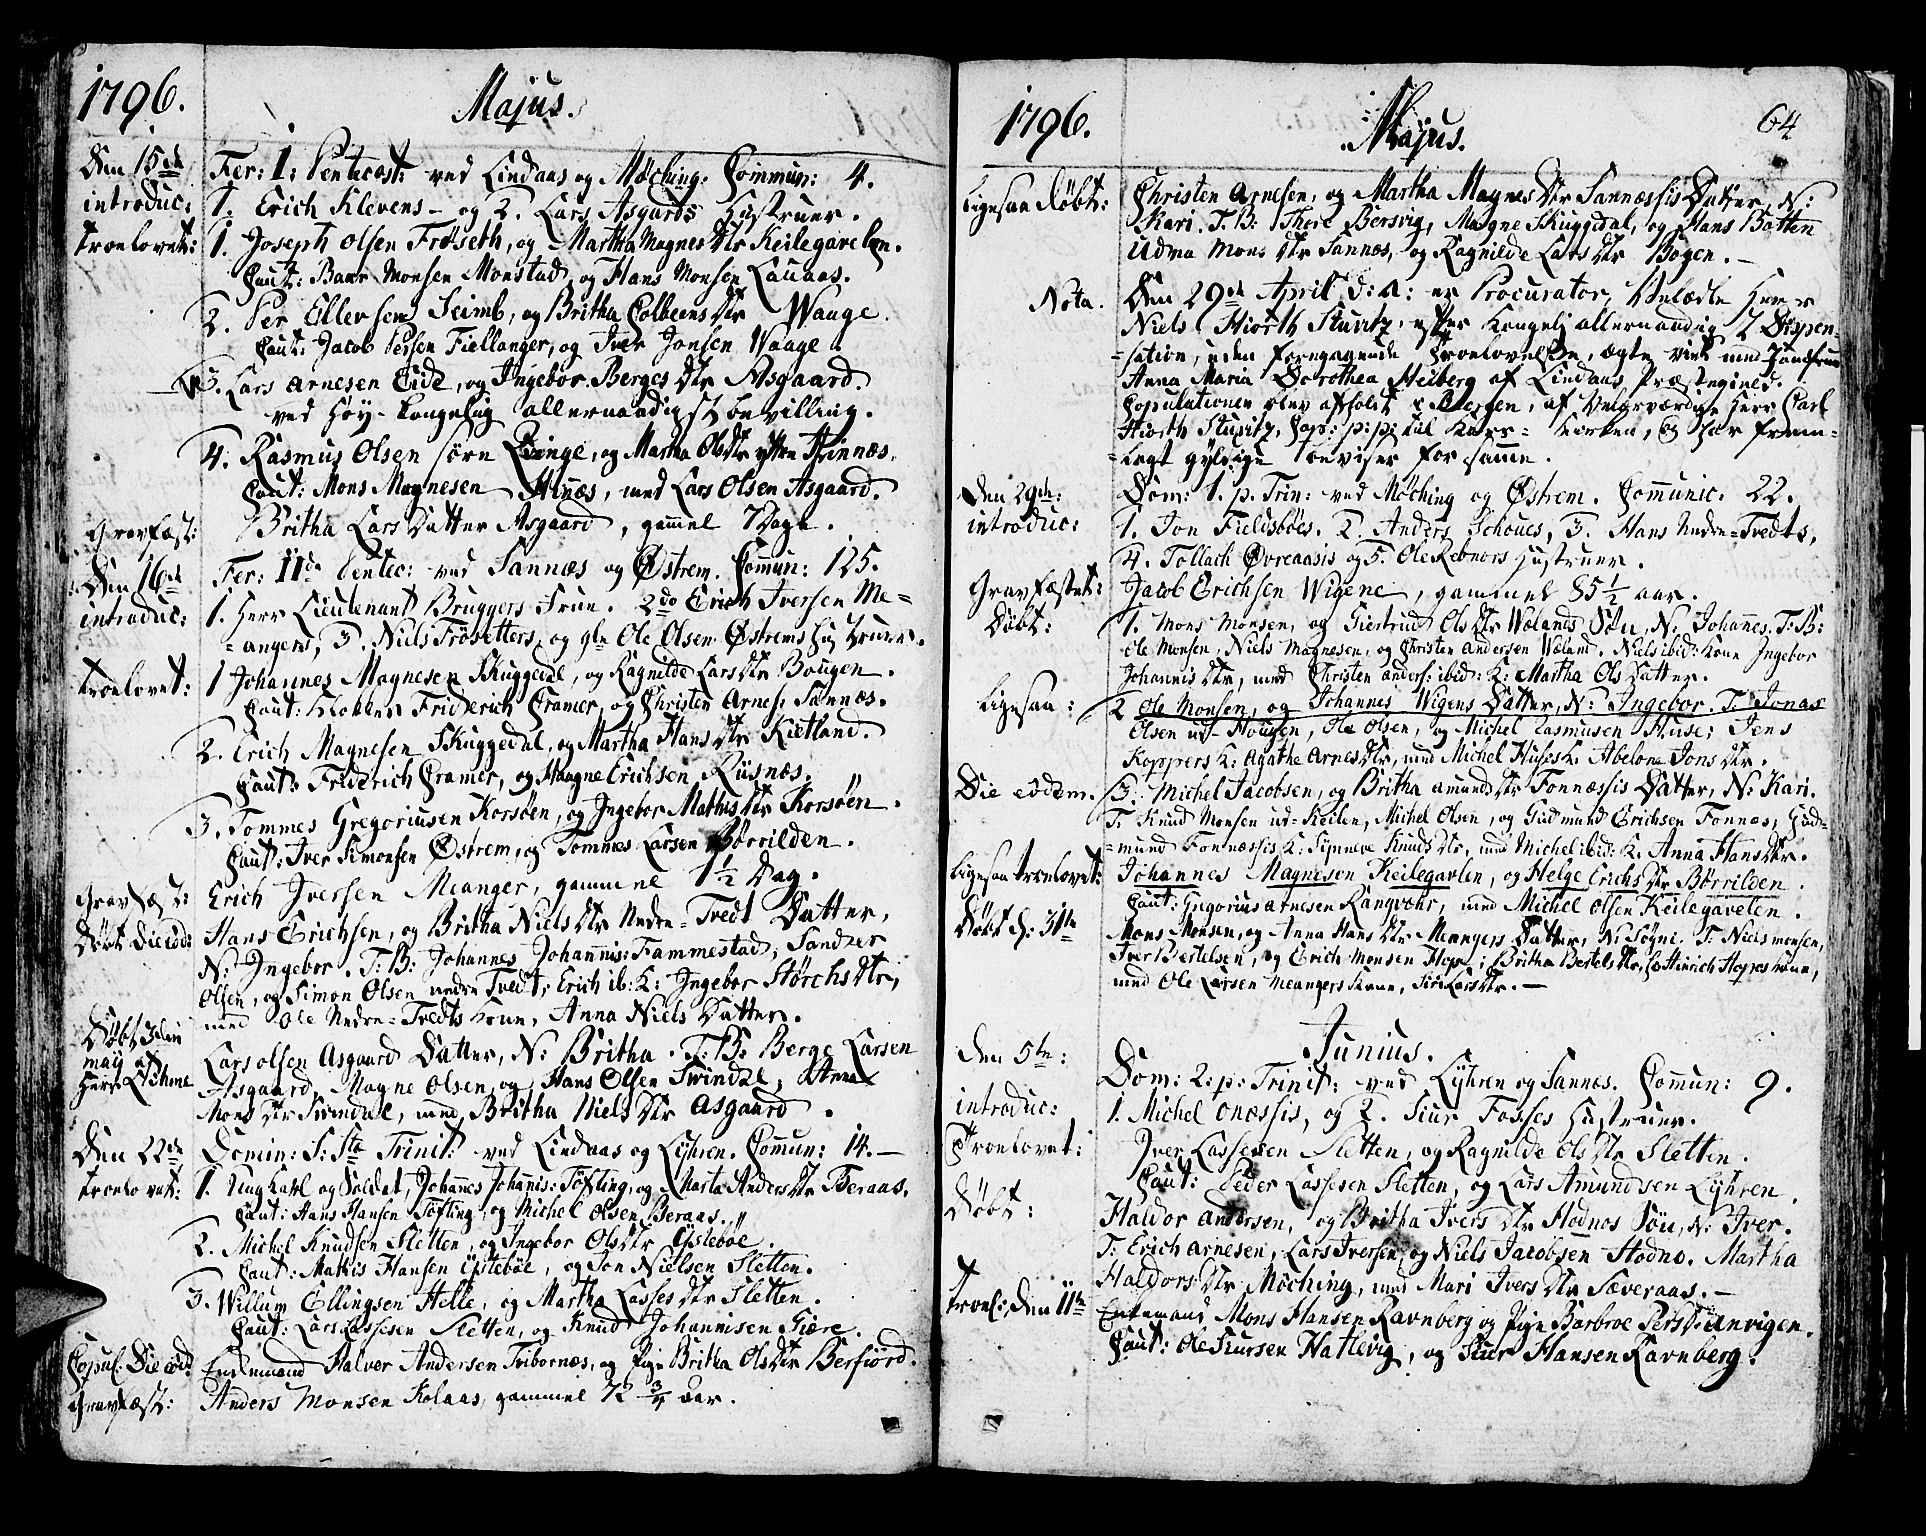 1796. Majus.
Den 15de Fer: 1: Pentecost: ved Lindaas og Møching. Commun: 4.
introduc: 1. Erich Klevens - og 2. Lars Asgards Hustruer.
troelovet: 1. Joseph Olsen Frøseth, og Martha Magnes Dtr Keilegavelen.
Caut: Baar Monsen Monstad, og Hans Monsen Lauaas.
2. Per Ellevsen Seimb, og Britha Colbeens Dtr Waage.
Caut: Jacob Persen Fiellanger, og Iver Jonsen Waage.
3. Lars Arnesen Eide, og Ingebor Berges Dtr Asgaard.
ved Høy-kongelig allernaadigst bevilling.
4. Rasmus Olsen Sørn Qvinge, og Martha Ols Dtr yttre Hinnæs.
Caut: Mons Magnesen Hinæs, med Lars Olsen Asgaard.
Gravfæst: Britha Lars Datter Asgaard, gamel 7 Dage.
Den 16de Fer: IIda Pentec: ved Sannæs og Østrem. Commun: 125.
introduc: 1. Herr Lieutenant Bruggers Frue. 2do Erich Iversen Me=
=angers, 3. Niels Frøsetters, og gle Ole Olsen Østrems Hustruer.
troelovet: 1 Johannes Magnesen Skuggedal, og Ragnilde Lars Dtr Bougen.
Caut: Klokker Friderich Cramer, og Christen Arnes: Sannæs.
2. Erich Magnesen Skuggedal, og Martha Hans Dtr Kietland.
Caut: Friderich Cramer, og Maagne Erichsen Riisnæs.
3. Tommes Gregoriusen Korsøen, og Ingebor Mathis Dtr Korsøen.
Caut: Iver Simonsen Østrem, og Tommes Larsen Børrilden.
Gravfæst: Erich Iversen Meanger, gammel 1½ Dag.
Døbt Die eod: Hans Erichsen, og Britha Niels Dtr Nedre-Tvedt Datter,
N: Ingebor. T: B: Johannes Johannis: Fammestad, Sandzer
Olsen, og Simon Olsen nedre Tvedt, Erich ib: K: Ingebor Størchs Dtr,
med Ole Nedre-Tvedts kone, Anna Niels Datter.
Døbt 3den
maij af
Herr Dehme
Lars Olsen Asgaard Datter, N: Britha. T: B: Berge Larsen
Asgaard, Magne Olsen, og Hans Olsen Svindal, Anna
Mons Dtr Svindal, med Britha Niels Dtr Asgaard.
Den 22de Domin: S: Stæ Trinit: ved Lindaas og Lÿhren. Comun: 14.
troelovet: 1. Ungkarl og Soldat, Johannes Johannis: Tøfting, og Marta Anders Dtr Beraas.
Caut: Hans Hansen Tøfting, og Michel Olsen Beraas.
2. Michel Knudsen Sletten, og Ingebor Ols Dtr Ÿstebøe.
Caut: Mathis Hansen Ÿstebøe, og Jon Nielsen Sletten.
3. Willum Ellingsen Helle, og Martha Lasses Dtr Sletten.
Caut: Lars Lassesen Sletten, og Knud Johannisen Fiære.
Copul: Die eod: Enkemand Halver Andersen Fribornæs, og Pige Britha Ols Dtr Berfiord.
Gravfæst: Anders Monsen Kolaas, gammel 72 ¾ aar.
1796. Majus. 64
Ligesaa Døbt: Christen Arnesen, og Martha Magnes Dtr Sannæssis Datter, N:
Kari. T: B: Thore Børsvig, Magne Skuggedal, og Hans Botten
Udva Mons Dtr Sannæs, og Ragnilde Lars Dtr Bogen.
Nota. Den 29de April d: a: er Procurator, Velædle Herr
Niels Hiorth Stuvitz, efter kongelig allernaadigst Dispen-
=sation, uden foregaaende Troelovelse, ægte viet med Jomfrue
Anna Maria Dorothea Heiberg af Lindaas Præstegield.
Copulationen blev afholdt i Bergen, af Velærværdige Herr Carl
Hiorth Stuvitz, Cap: p: p: til Kors-kirken, og har frem-
=lagt gyldige beviser for samme.
Den 29de: Dom: 1. p. Trin: ved Møching og Østrem. Comunic: 22.
introduc: 1. Jon Fieldsbøes. 2. Anders Schoues, 3. Hans Nedre-Tvedts,
4. Tollach Øvreaasis og 5. Ole Rebnors Hustruer.
Gravfæstet: Jacob Erichsen Wigene, gammel 85½ aar.
Døbt: 1. Mons Monsen, og Giertrud Ols Dtr Wølands Søn, N: Johannes. T: B:
Ole Monsen, Niels Magnesen, og Christen Andersen Wøland, Niels ibid: kone Ingebor
Johannis Dtr, med Christen Anders: ibid: K: Martha Ols Datter.
Ligesaa: 2 Ole Monsen, og Johannis Wigens Datter, N: Ingebor. T: Jonas
Olsen ud-Hougen, Ole Olsen, og Michel Rasmusen Huse; Jens
Koppers K: Agathe Arnes Dtr, med Michel Huses K. Abelone Jons Dtr.
Die eodem. 3. Michel Jacobsen, og Britha Amunds Dtr Fonnæssis Datter, N: Kari.
T: Knud Monsen ud-Keilen, Michel Olsen, og Gudmund Erichsen Fonnæs, Gud=
=mund Fonnæssis K: Synneve Knuds Dtr, med Michel ibid: K. Anna Hans Dtr.
Ligesaa troelovet: Johannes Magnesen Keilegavlen, og Helge Erichs Dtr Børrilden.
Caut: Gregorius Arnesen Rangvohr, med Michel Olsen Keilegavelen.
Døbt d: 31te Mons Monsen, og Anna Hans Dtr Meangers Datter, N: Søgni. T: Niels Monsen,
Iver Bertelsen, og Erich Monsen Hope; Britha Bertels Dtr, Hinrich Hopes kone,
med Ole Larsen Meangers kone, Siri Lars Dtr.
Junius.
Den 5te: Dom: 2: p: Trinit: ved Lÿhren og Sannes. Comun: 9.
introduc: 1. Michel Onæssis, og 2. Siur Fosses Hustruer.
Troelovet: Iver Lassesen Sletten, og Ragnilde Ols Dtr Sletten.
Caut: Peder Lassesen Sletten, og Lars Amundsen Lÿhren.
Døbt: Haldor Andersen, og Britha Ivers Dtr Hodnes Søn, N: Iver.
T: Erich Arnesen, Lars Iversen, og Niels Jacobsen Hodne. Martha
Haldors Dtr Møching, med Mari Ivers Dtr Sæveraas.
Troel: den 11te Enkemand Mons Hansen Ravnberg og Pige Barbroe Pers D: Anvigen.
Caut: Ole Siursen Hatlevig, og Siur Hansen Ravnberg.